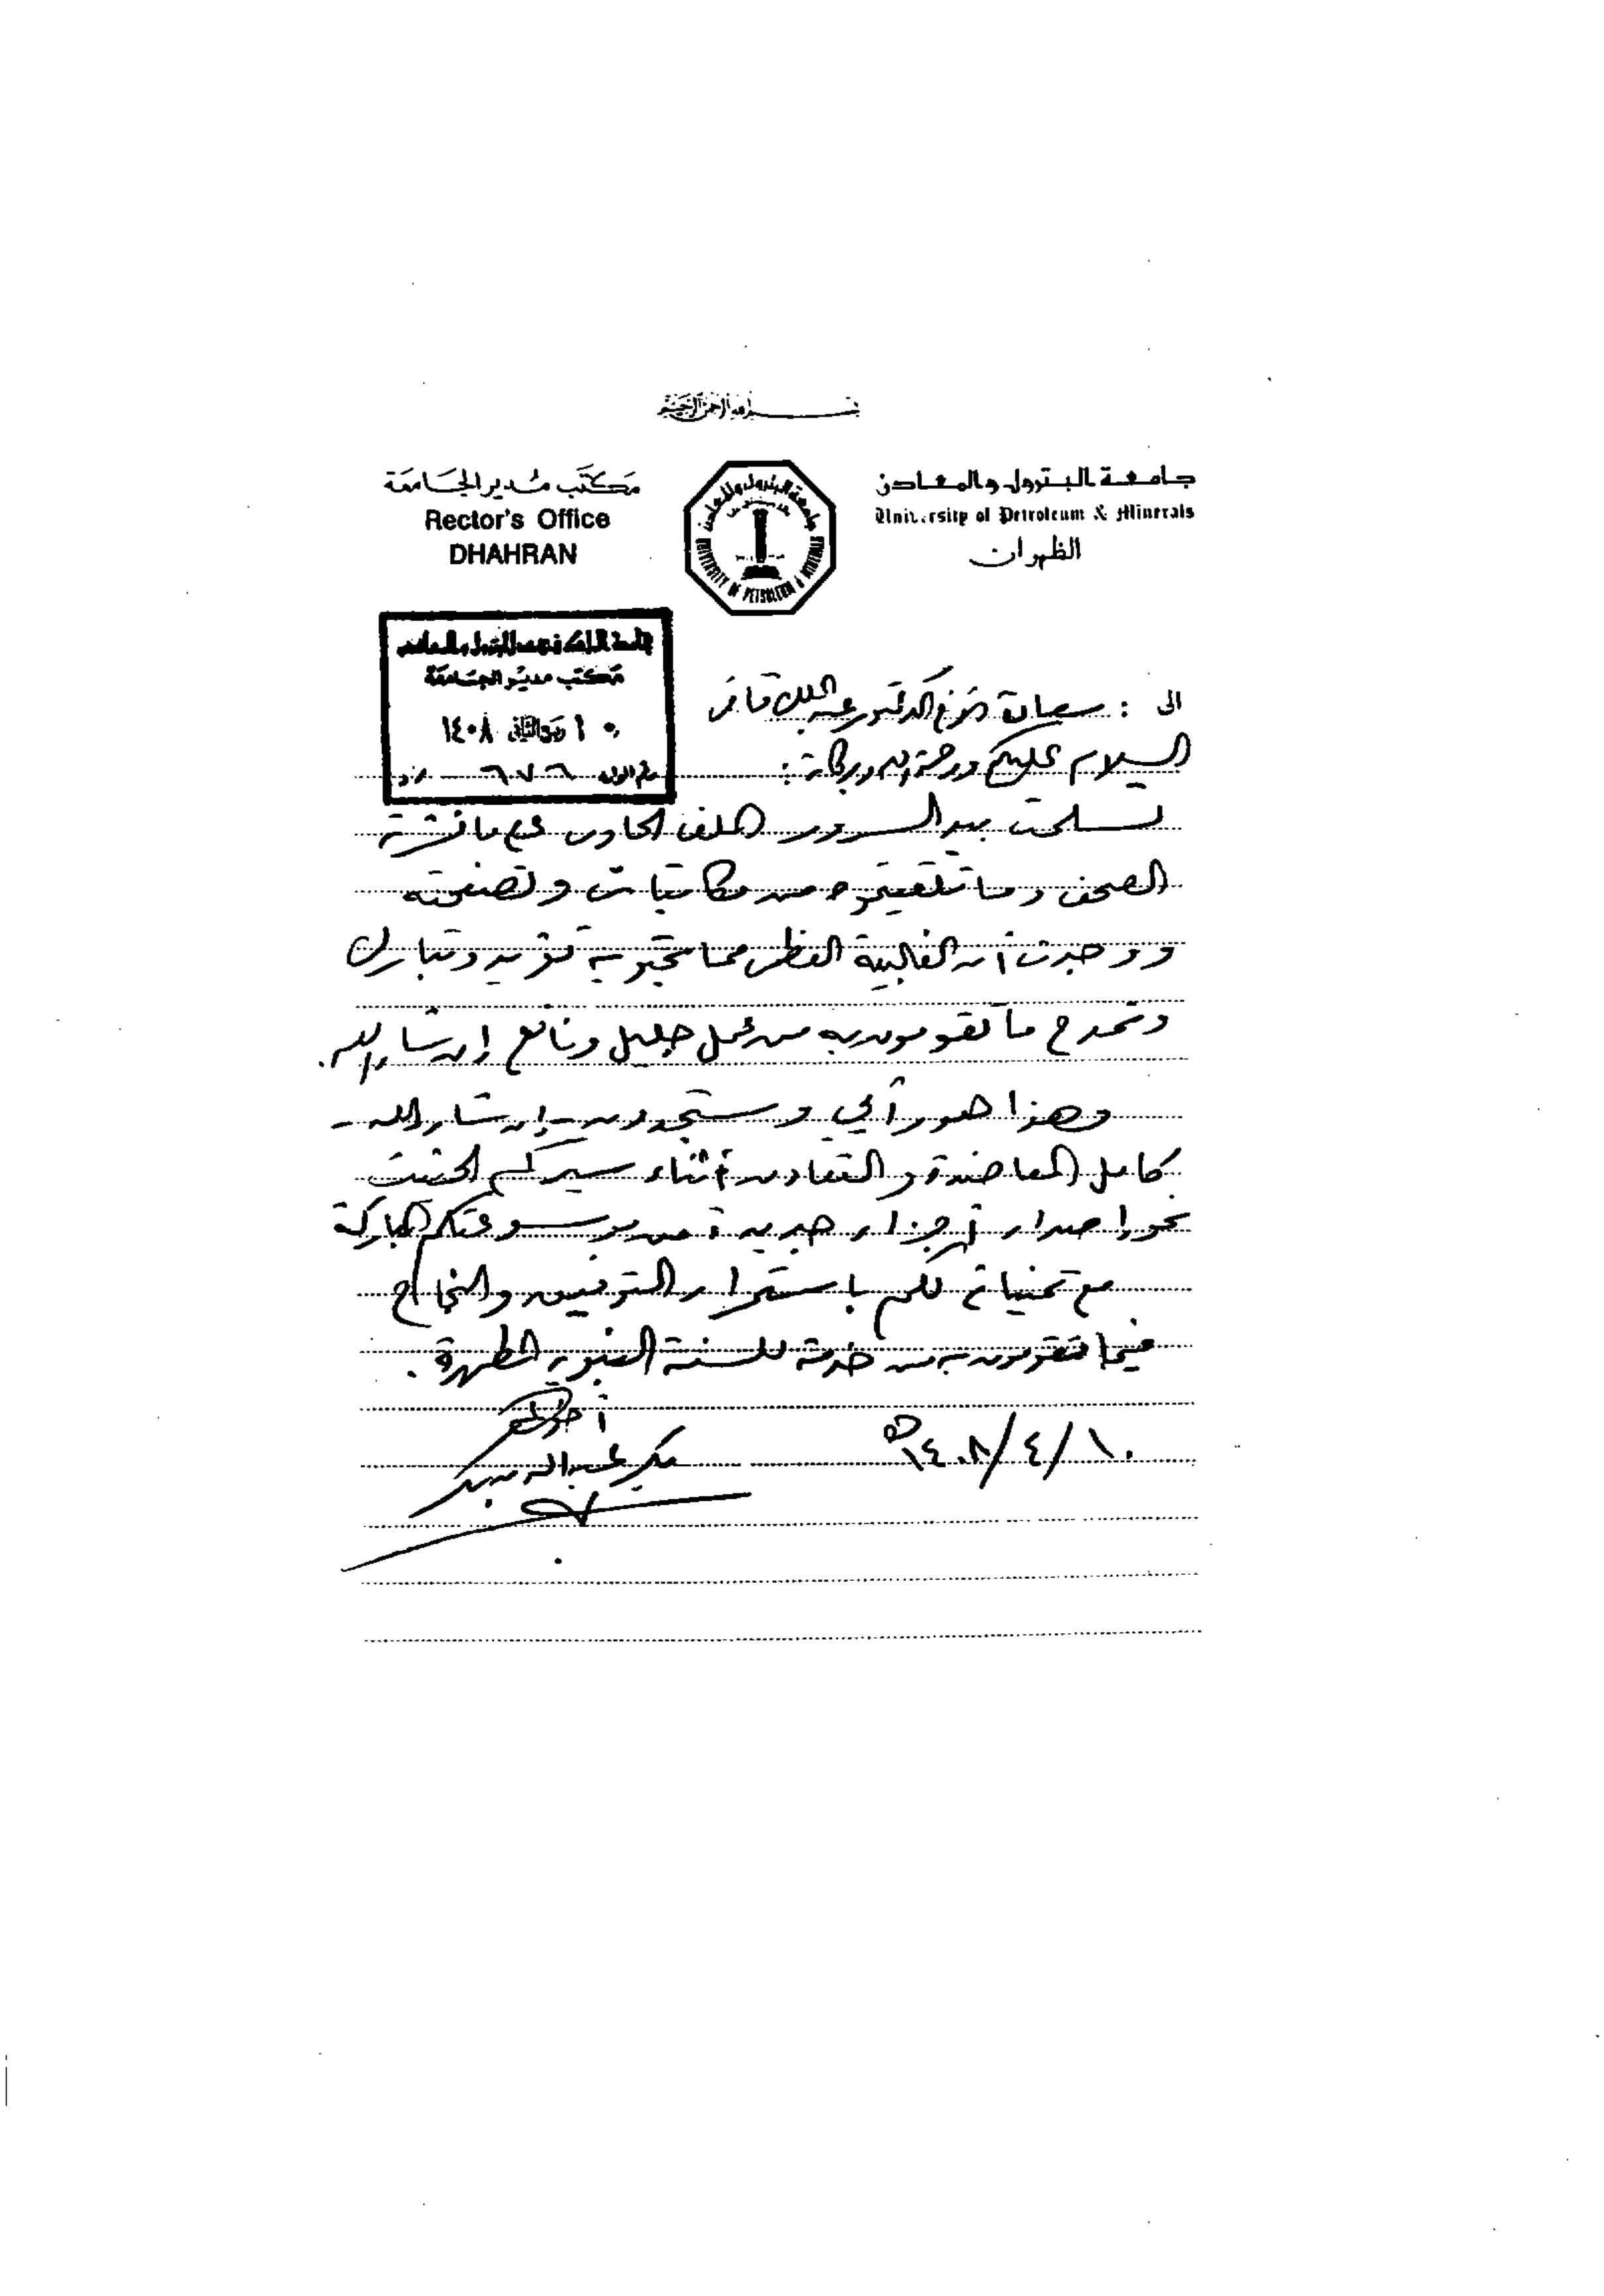 بسم الله الرحمن الرحيم
جامعة البترول والمعادن
University of Petroleum & Minerals
الظهران
جامعة البترول والمعادن
UNIVERSITY OF PETROLEUM & MINERALS
مكتب مدير الجامعة
Rector's Office
DHAHRAN
جامعة الملك فهد للبترول والمعادن
مكتب مدير الجامعة
١٠ ربيع الثاني ١٤٠٨
٦٧٦
الى : سعادة الدكتور عبد الملك قاضي
السلام عليكم ورحمة الله وبركاته :
تسلمت بيد السرور الملف الحاوي على ما نشرته
الصحف وما تلقيتموه من مكاتبات وتصفحته
ووجدت أن الغالبية العظمى مما يحتويه تؤيد وتبارك
وتمدح ما تقومون به من عمل جليل ونافع إن شاء الله.
وهذا هو رأيي وستجدون - إن شاء الله -
كامل المعاضدة والتعاون أثناء سيركم الحثيث
نحو إصدار أجزاء جديدة من موسوعتكم المباركة
مع تمنياتي لكم باستمرار التوفيق والنجاح
فيما تقومون به من خدمة للسنة النبوية المطهرة.
أخوكم
بكر عبدالله بكر
١٤٠٨/٤/١٠ هـ